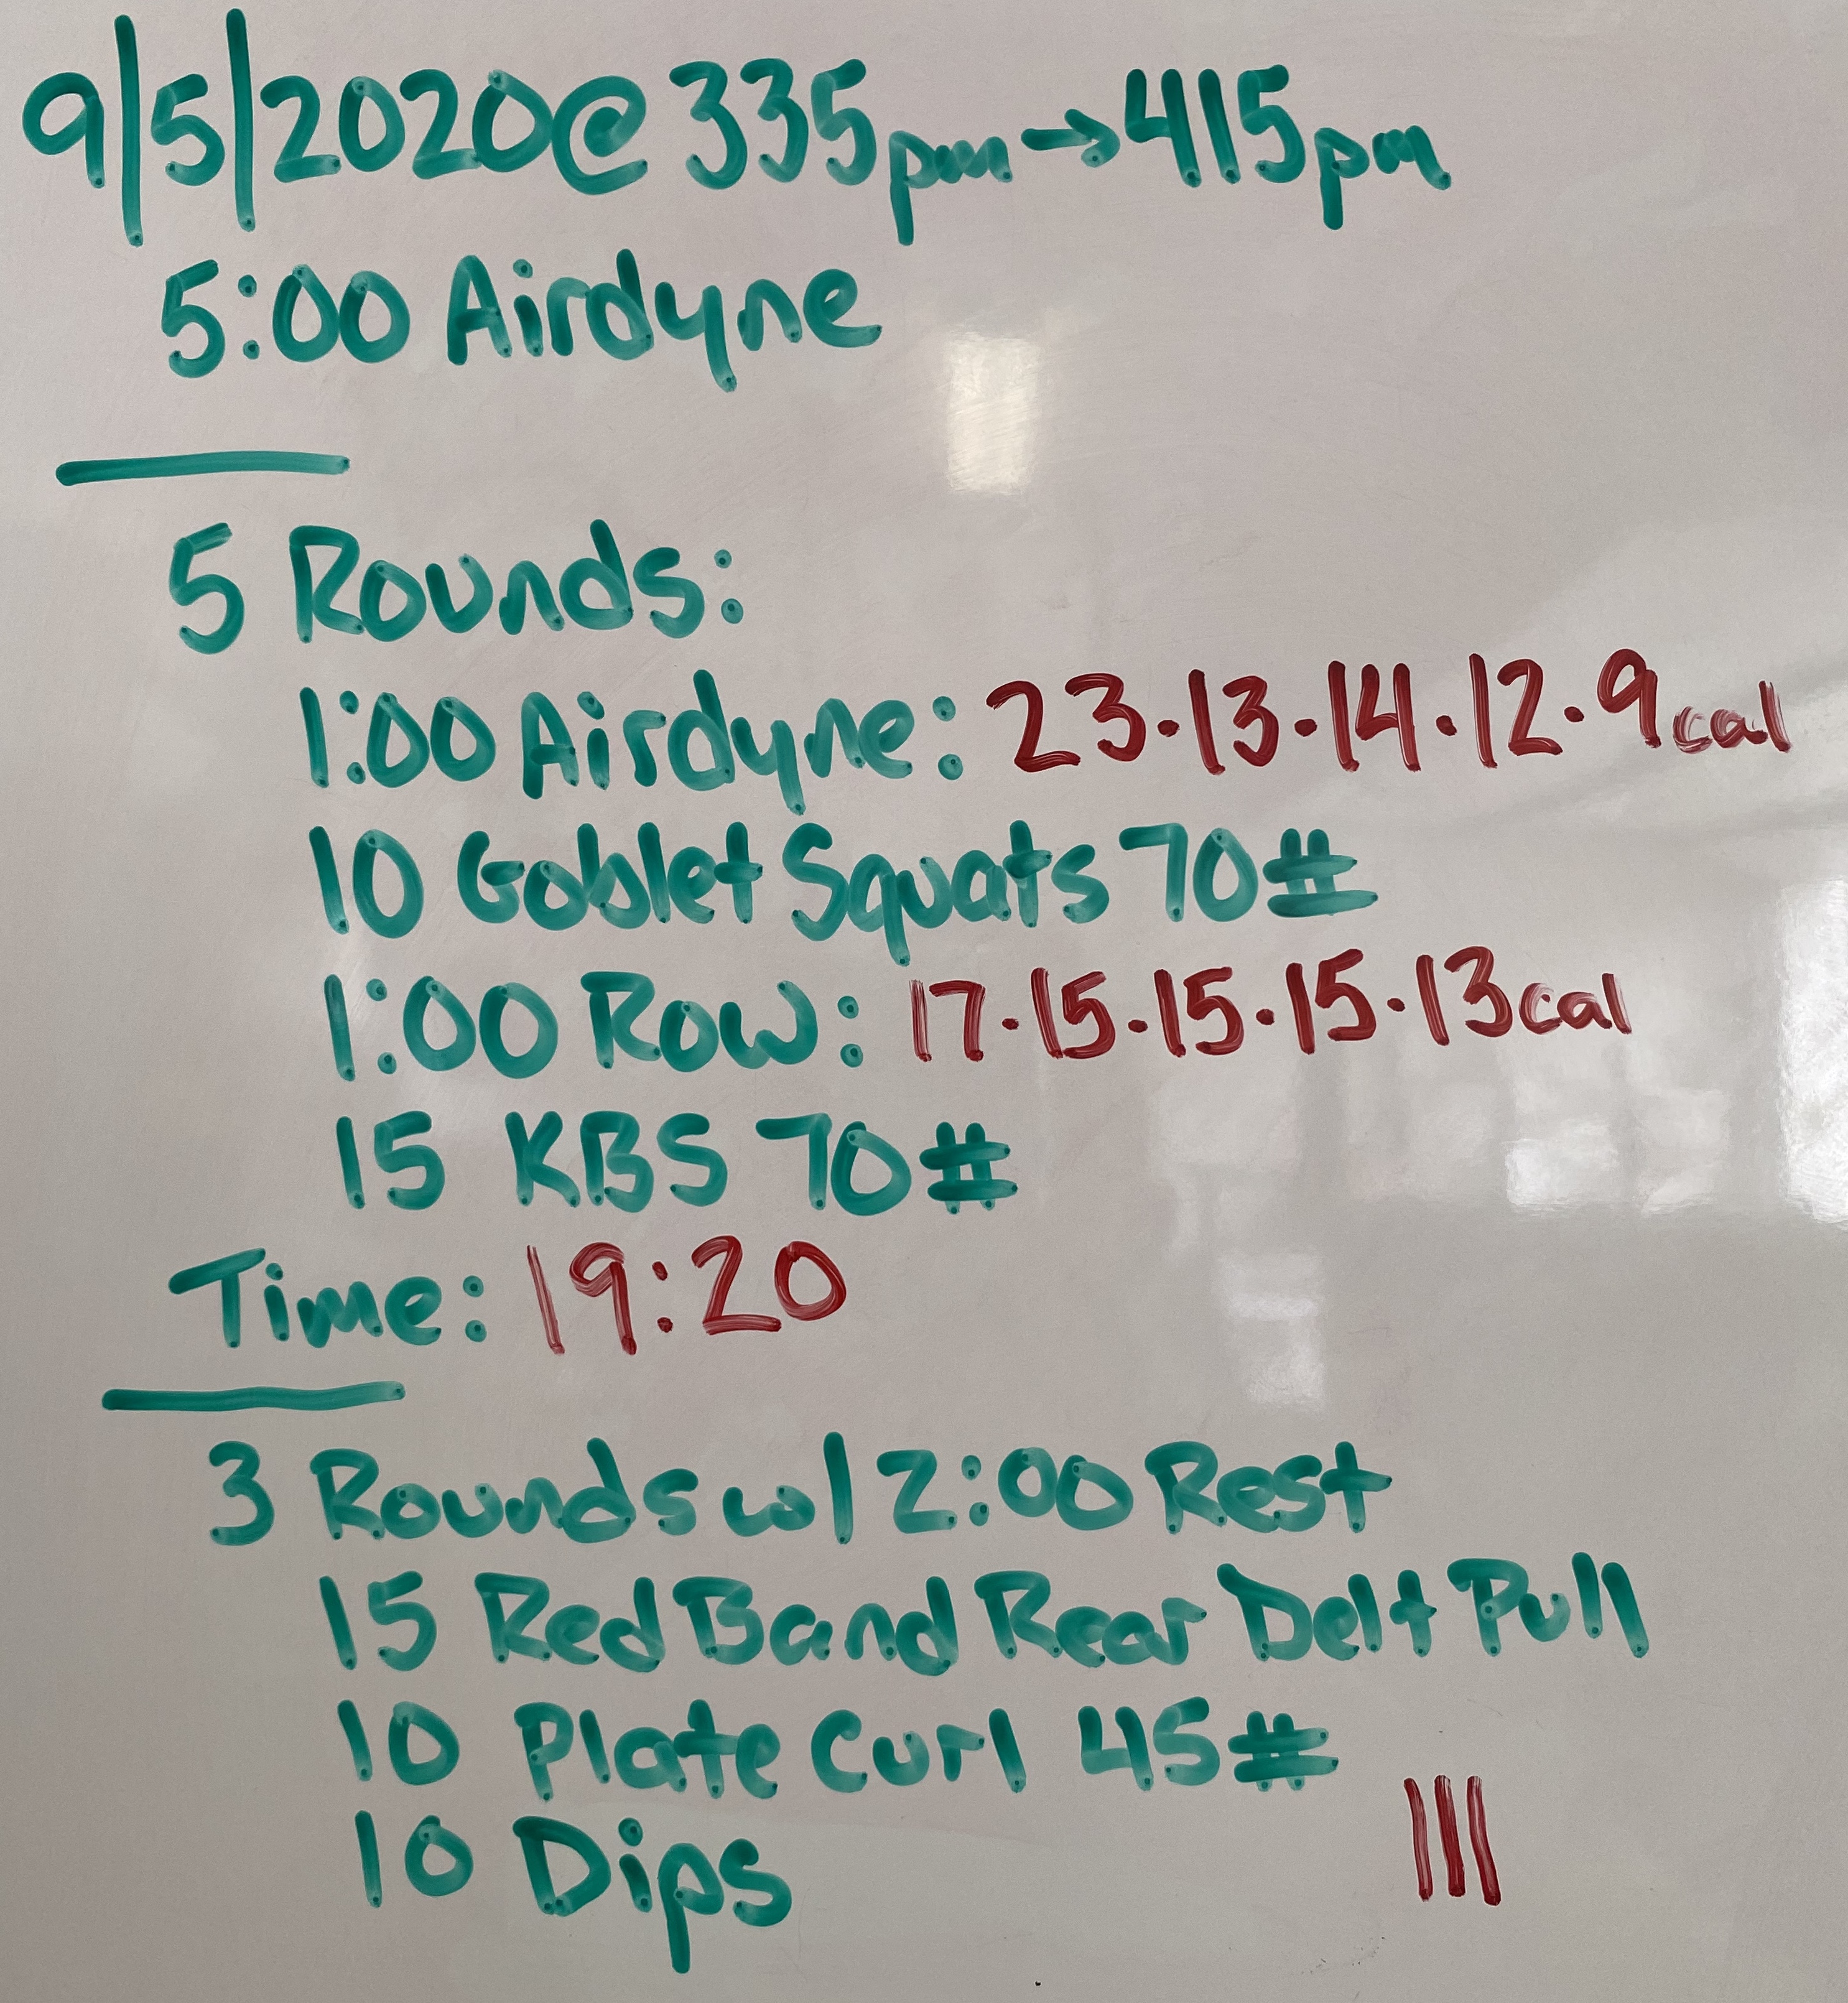 9/5/2020 @ 335pm → 415pm
5:00 Airdyne
5 Rounds:
1:00 Airdyne: 23 · 13 · 14 · 12 · 9 cal
10 Goblet Squats 70#
1:00 Row: 17 · 15 · 15 · 15 · 13 cal
15 KBS 70#
Time: 19:20
3 Rounds w/ 2:00 Rest
15 Red Band Rear Delt Pull
10 Plate Curl 45#
10 Dips |||